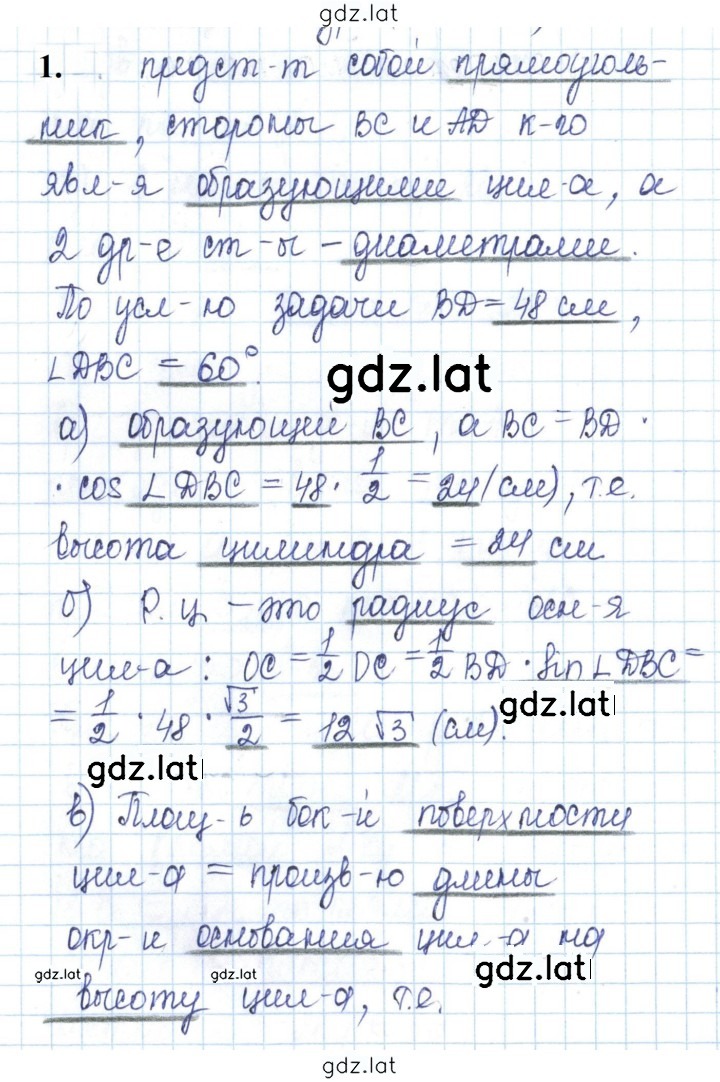 gdz.lat
1. предст-т собой прямоуголь-
ник, стороны BC и AD к-го
явл-я образующими цил-а, а
2 др-е ст-ы – диаметрами.
По усл-ю задачи BD = 48 см,
∠DBC = 60°.
gdz.lat
а) образующей BC, а BC = BD ·
· cos ∠DBC = 48 · 1/2 = 24 (см), т.е.
высота цилиндра = 24 см
б) Р. ц. – это радиус осн-я
цил-а: OC = 1/2 DC = 1/2 BD · sin ∠DBC =
gdz.lat
= 1/2 · 48 · √3/2 = 12 √3 (см).
gdz.lat
в) Площ-ь бок-й поверхности
цил-а = произв-ю длины
окр-и основания цил-а на
gdz.lat gdz.lat gdz.lat
высоту цил-а, т.е.
gdz.lat